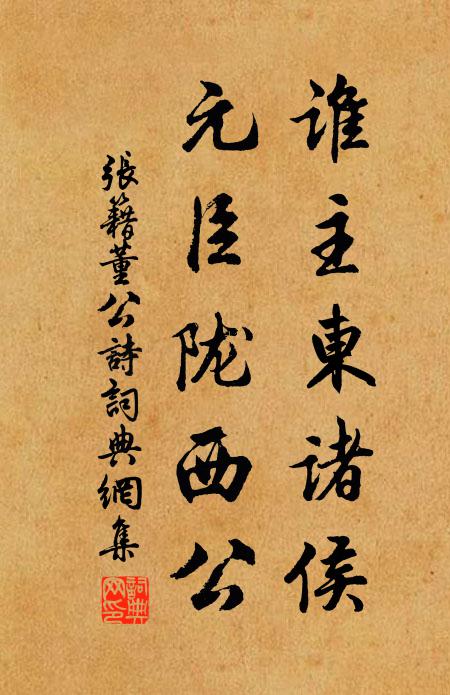 誰主東諸侯
元臣陇西公
張籍董公詩詞典網集
詞典網印